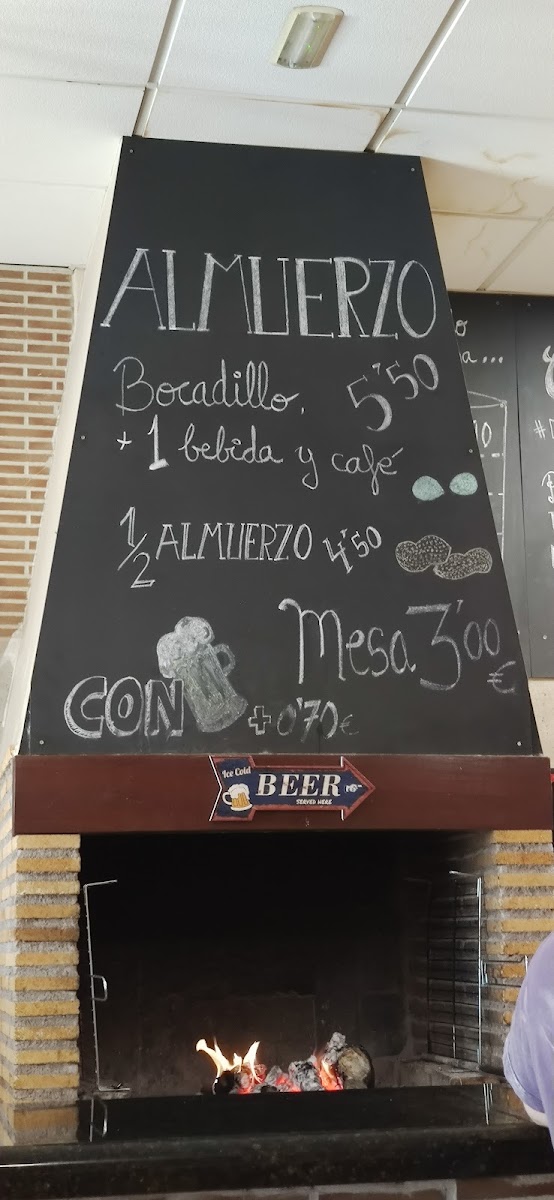 ALMUERZO
Bocadillo, 5'50
+ 1 bebida y café
1/2 ALMUERZO 4'50
Mesa 3'00 €
CON + 0'70 €
Ice Cold BEER
SERVED HERE